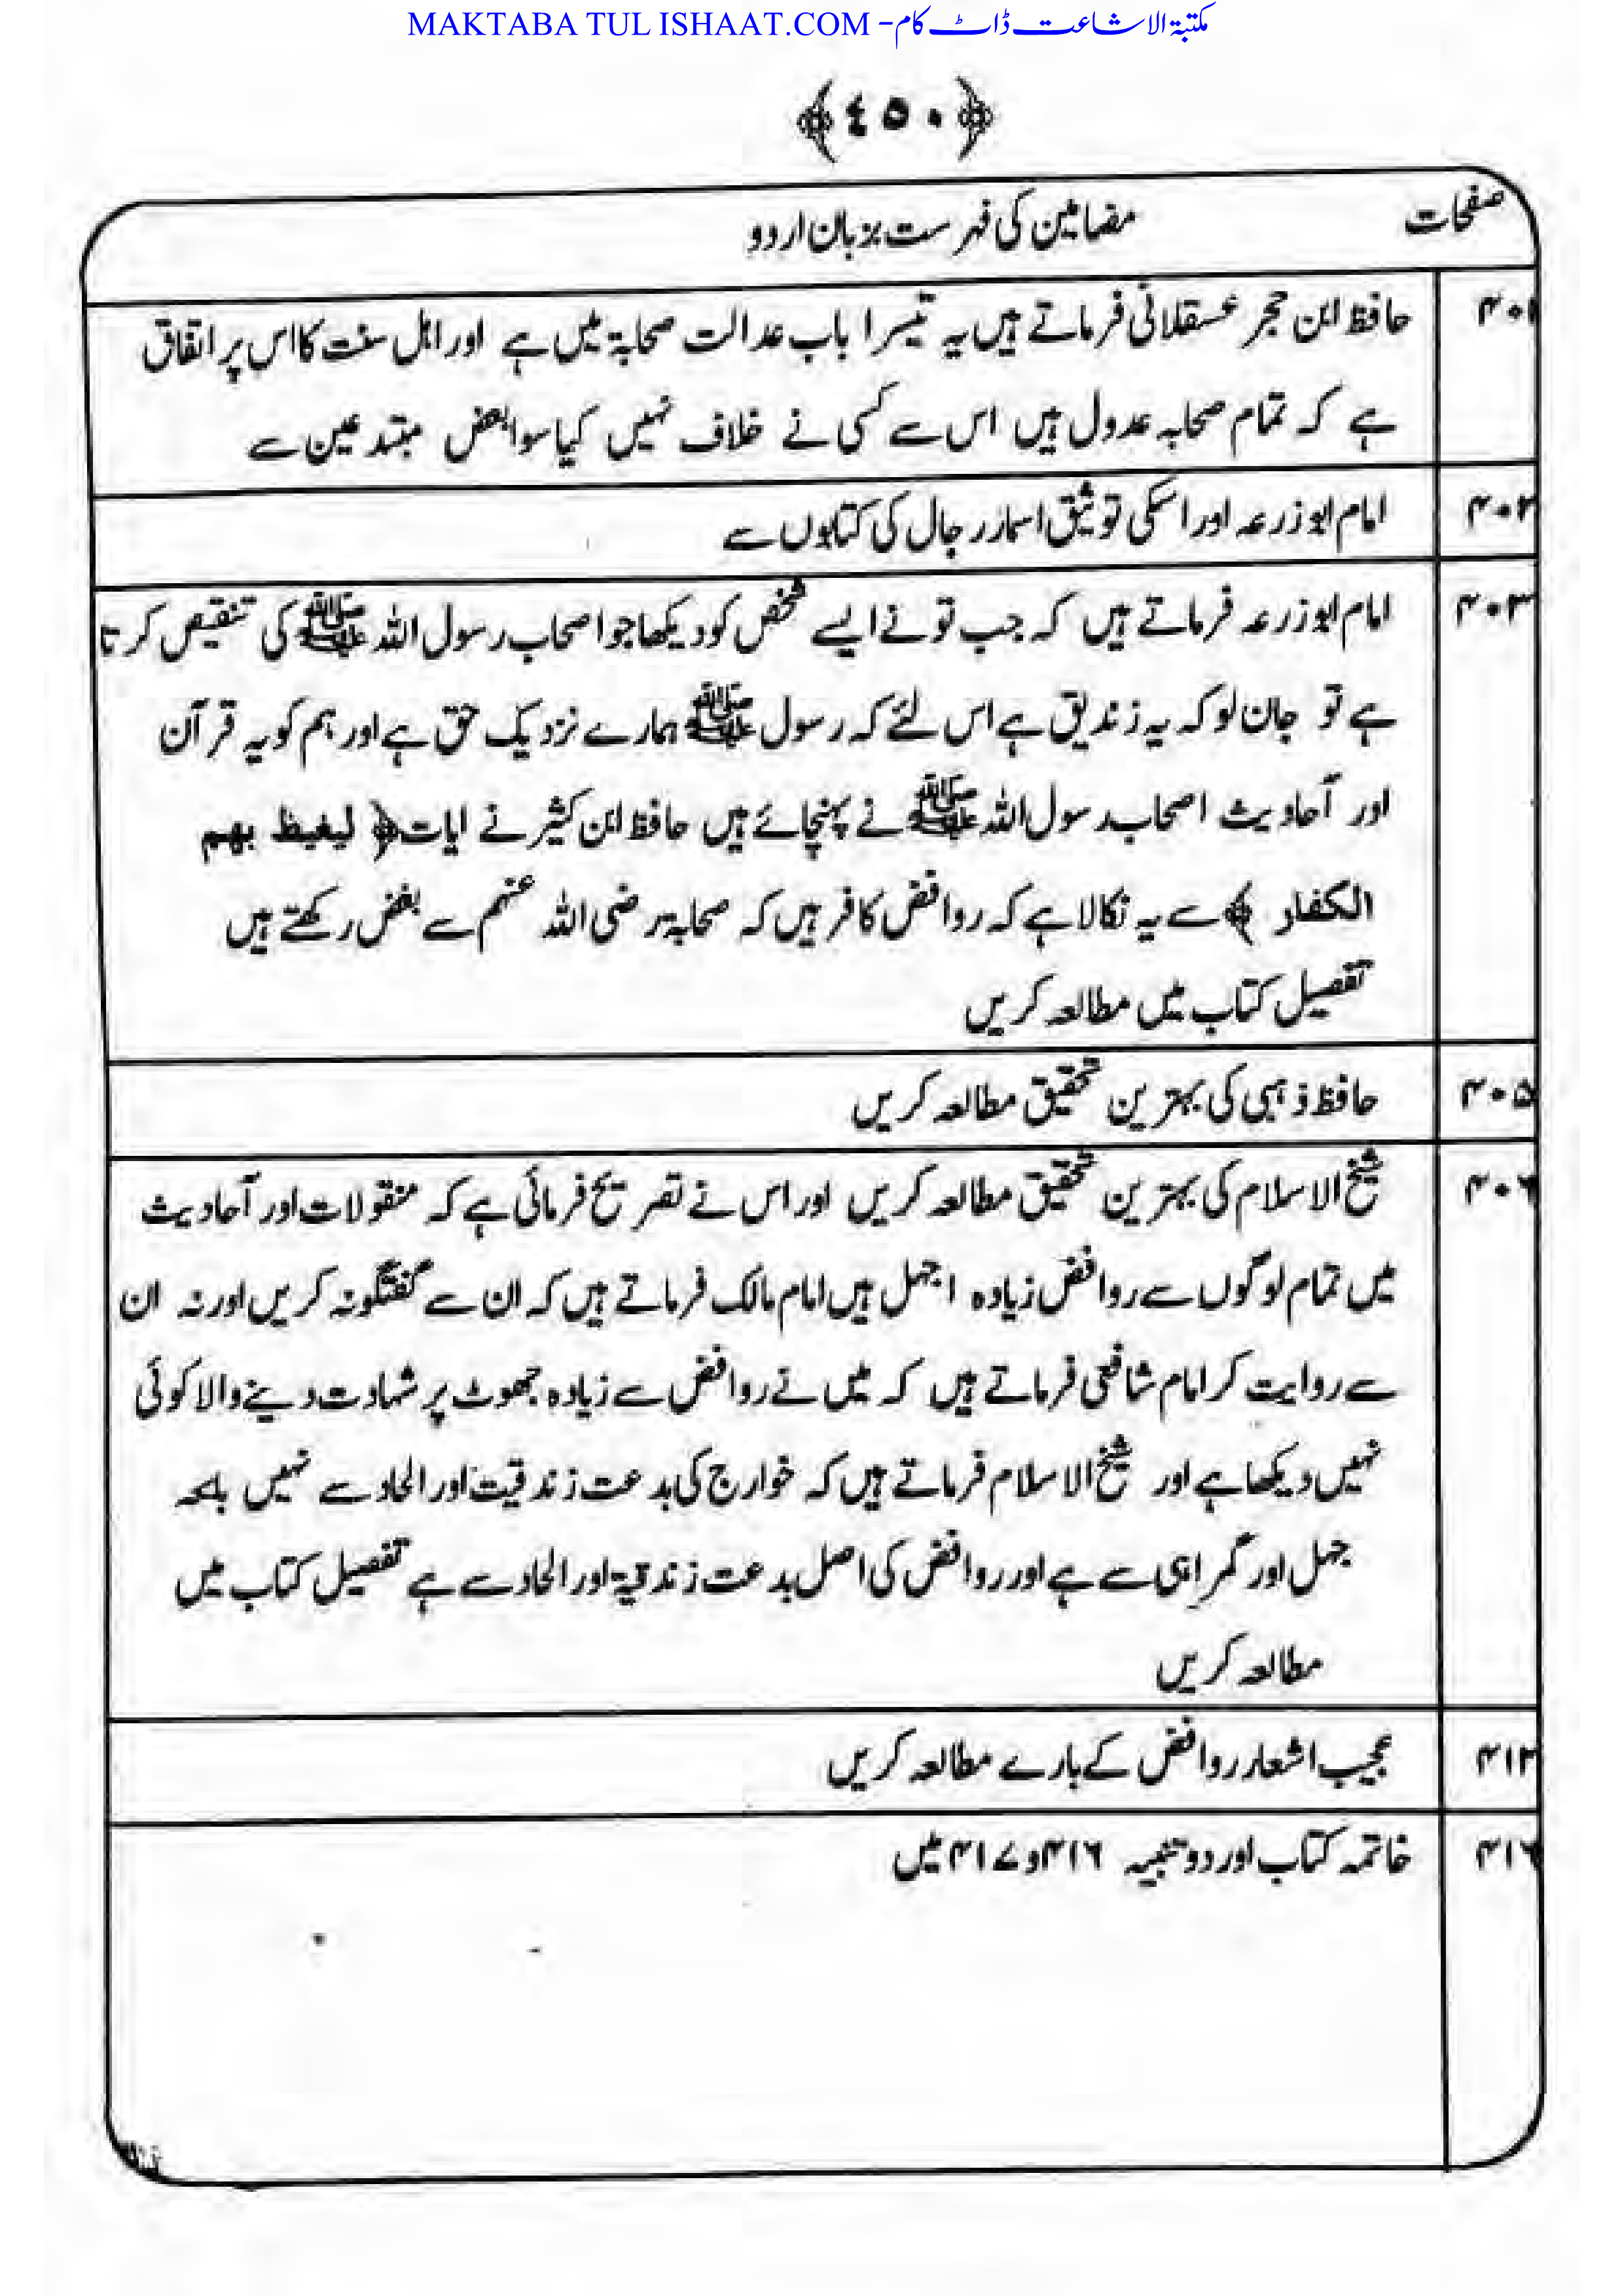 MAKTABA TUL ISHAAT.COM - مکتبۃ الاشاعت ڈاٹ کام
﴿٤٥٠﴾
صفحات مضامین کی فہرست بزبان اردو
۴۰۱ حافظ ابن حجر عسقلانی فرماتے ہیں یہ تیسرا باب عدالت صحابۃ میں ہے اور اہل سنت کا اس پر اتفاق
ہے کہ تمام صحابہ عدول ہیں اس سے کسی نے خلاف نہیں کیا سوا بعض مبتدعین سے
۴۰۲ امام ابو زرعہ اور اسکی توثیق اسمار رجال کی کتابوں سے
۴۰۳ امام ابو زرعہ فرماتے ہیں کہ جب تو نے ایسے شخص کو دیکھا جو اصحاب رسول اللہ ﷺ کی تنقیص کرتا
ہے تو جان لو کہ یہ زندیق ہے اس لئے کہ رسول ﷺ ہمارے نزدیک حق ہے اور ہم کو یہ قرآن
اور آحادیث اصحاب رسول اللہ ﷺ نے پہنچائے ہیں حافظ ابن کثیر نے ایات ﴿ لیغیظ بھم
الکفار ﴾ سے یہ نکالا ہے کہ روافض کافر ہیں کہ صحابۃ رضی اللہ عنھم سے بغض رکھتے ہیں
تفصیل کتاب میں مطالعہ کریں
۴۰۵ حافظ ذہبی کی بہترین تحقیق مطالعہ کریں
۴۰۶ شیخ الاسلام کی بہترین تحقیق مطالعہ کریں اور اس نے تصریح فرمائی ہے کہ منقولات اور آحادیث
میں تمام لوگوں سے روافض زیادہ اجہل ہیں امام مالک فرماتے ہیں کہ ان سے گفتگو نہ کریں اور نہ ان
سے روایت کر امام شافعی فرماتے ہیں کہ میں نے روافض سے زیادہ جھوٹ پر شہادت دینے والا کوئی
نہیں دیکھا ہے اور شیخ الاسلام فرماتے ہیں کہ خوارج کی بدعت زندقیت اور الحاد سے نہیں بلکہ
جہل اور گمراہی سے ہے اور روافض کی اصل بدعت زندقیۃ اور الحاد سے ہے تفصیل کتاب میں
مطالعہ کریں
۴۱۲ عجیب اشعار روافض کے بارے مطالعہ کریں
۴۱۶ خاتمہ کتاب اور دو تنبیہ ۴۱۶ و ۴۱۷ میں